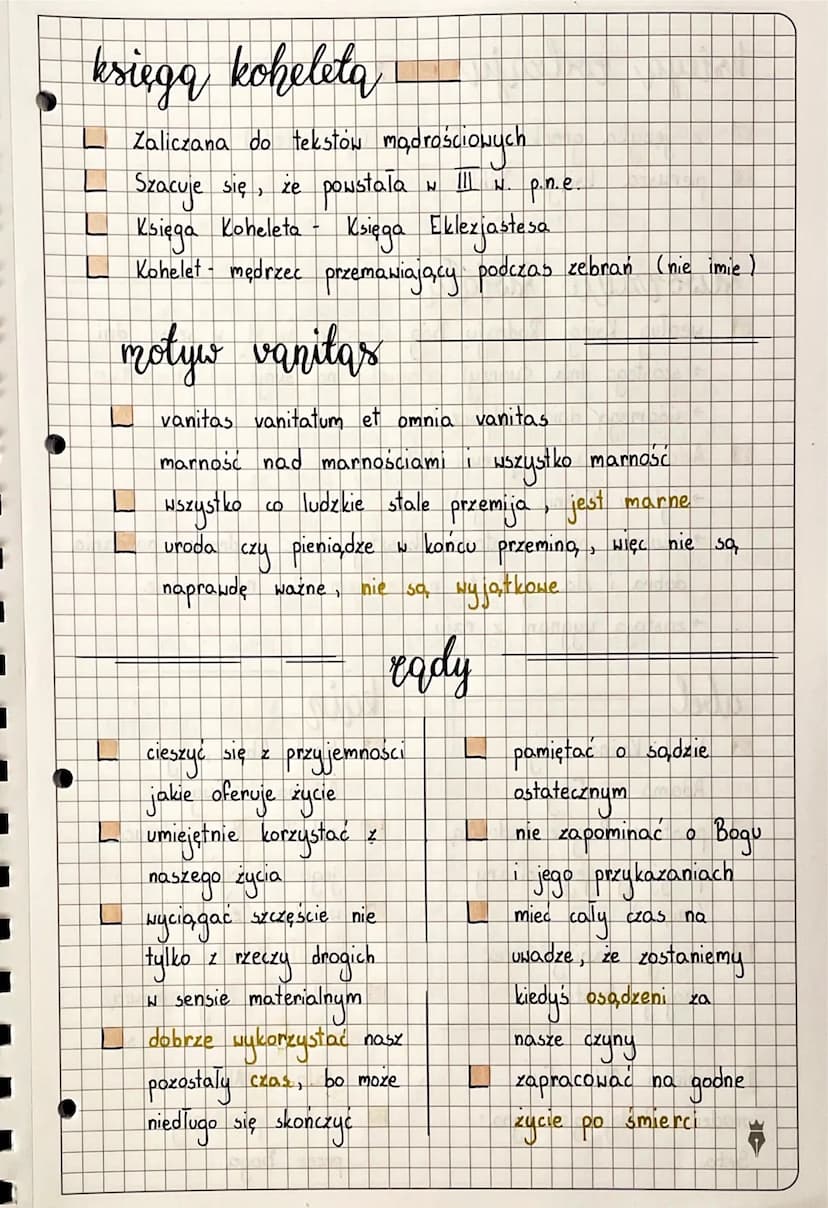 księga koheleta
Zaliczana do tekstów mądrościowych
Szacuje się, że powstała w III w. p.n.e.
Księga Koheleta - Księga Eklezjastesa
Kohelet - mędrzec przemawiający podczas zebrań (nie imie)
motyw vanitas
vanitas vanitatum et omnia vanitas
marność nad marnościami i wszystko marność
wszystko co ludzkie stale przemija, jest marne
uroda czy pieniądze w końcu przeminą, więc nie są
naprawdę ważne, nie są wyjątkowe
rady
cieszyć się z przyjemności
jakie oferuje życie
umiejętnie korzystać z
naszego życia
wyciągać szczęście nie
tylko z rzeczy drogich
w sensie materialnym
dobrze wykorzystać nasz
pozostały czas, bo może
niedługo się skończyć
pamiętać o sądzie
ostatecznym
nie zapominać o Bogu
i jego przykazaniach
mieć cały czas na
uwadze, że zostaniemy
kiedyś osądzeni za
nasze czyny
zapracować na godne
życie po śmierci